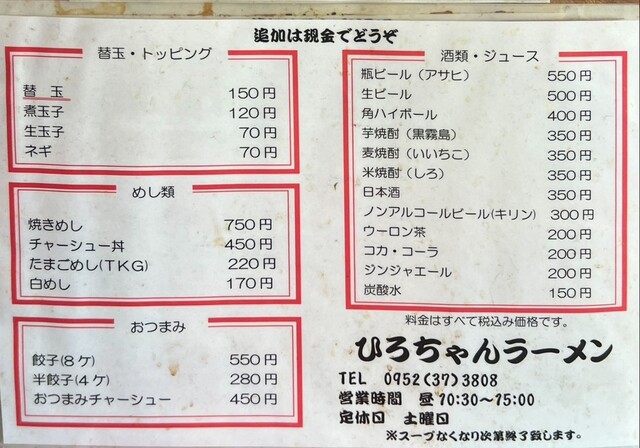 追加は現金でどうぞ
替玉・トッピング
替　玉　150円
煮玉子　120円
生玉子　70円
ネギ　70円
めし類
焼きめし　750円
チャーシュー丼　450円
たまごめし(TKG)　220円
白めし　170円
おつまみ
餃子(8ケ)　550円
半餃子(4ケ)　280円
おつまみチャーシュー　450円
酒類・ジュース
瓶ビール（アサヒ）　550円
生ビール　500円
角ハイボール　400円
芋焼酎（黒霧島）　350円
麦焼酎（いいちこ）　350円
米焼酎（しろ）　350円
日本酒　350円
ノンアルコールビール(キリン)　300円
ウーロン茶　200円
コカ・コーラ　200円
ジンジャエール　200円
炭酸水　150円
料金はすべて税込み価格です。
ひろちゃんラーメン
TEL　0952(37)3808
営業時間　昼 10:30〜15:00
定休日　土曜日
※スープなくなり次第終了致します。